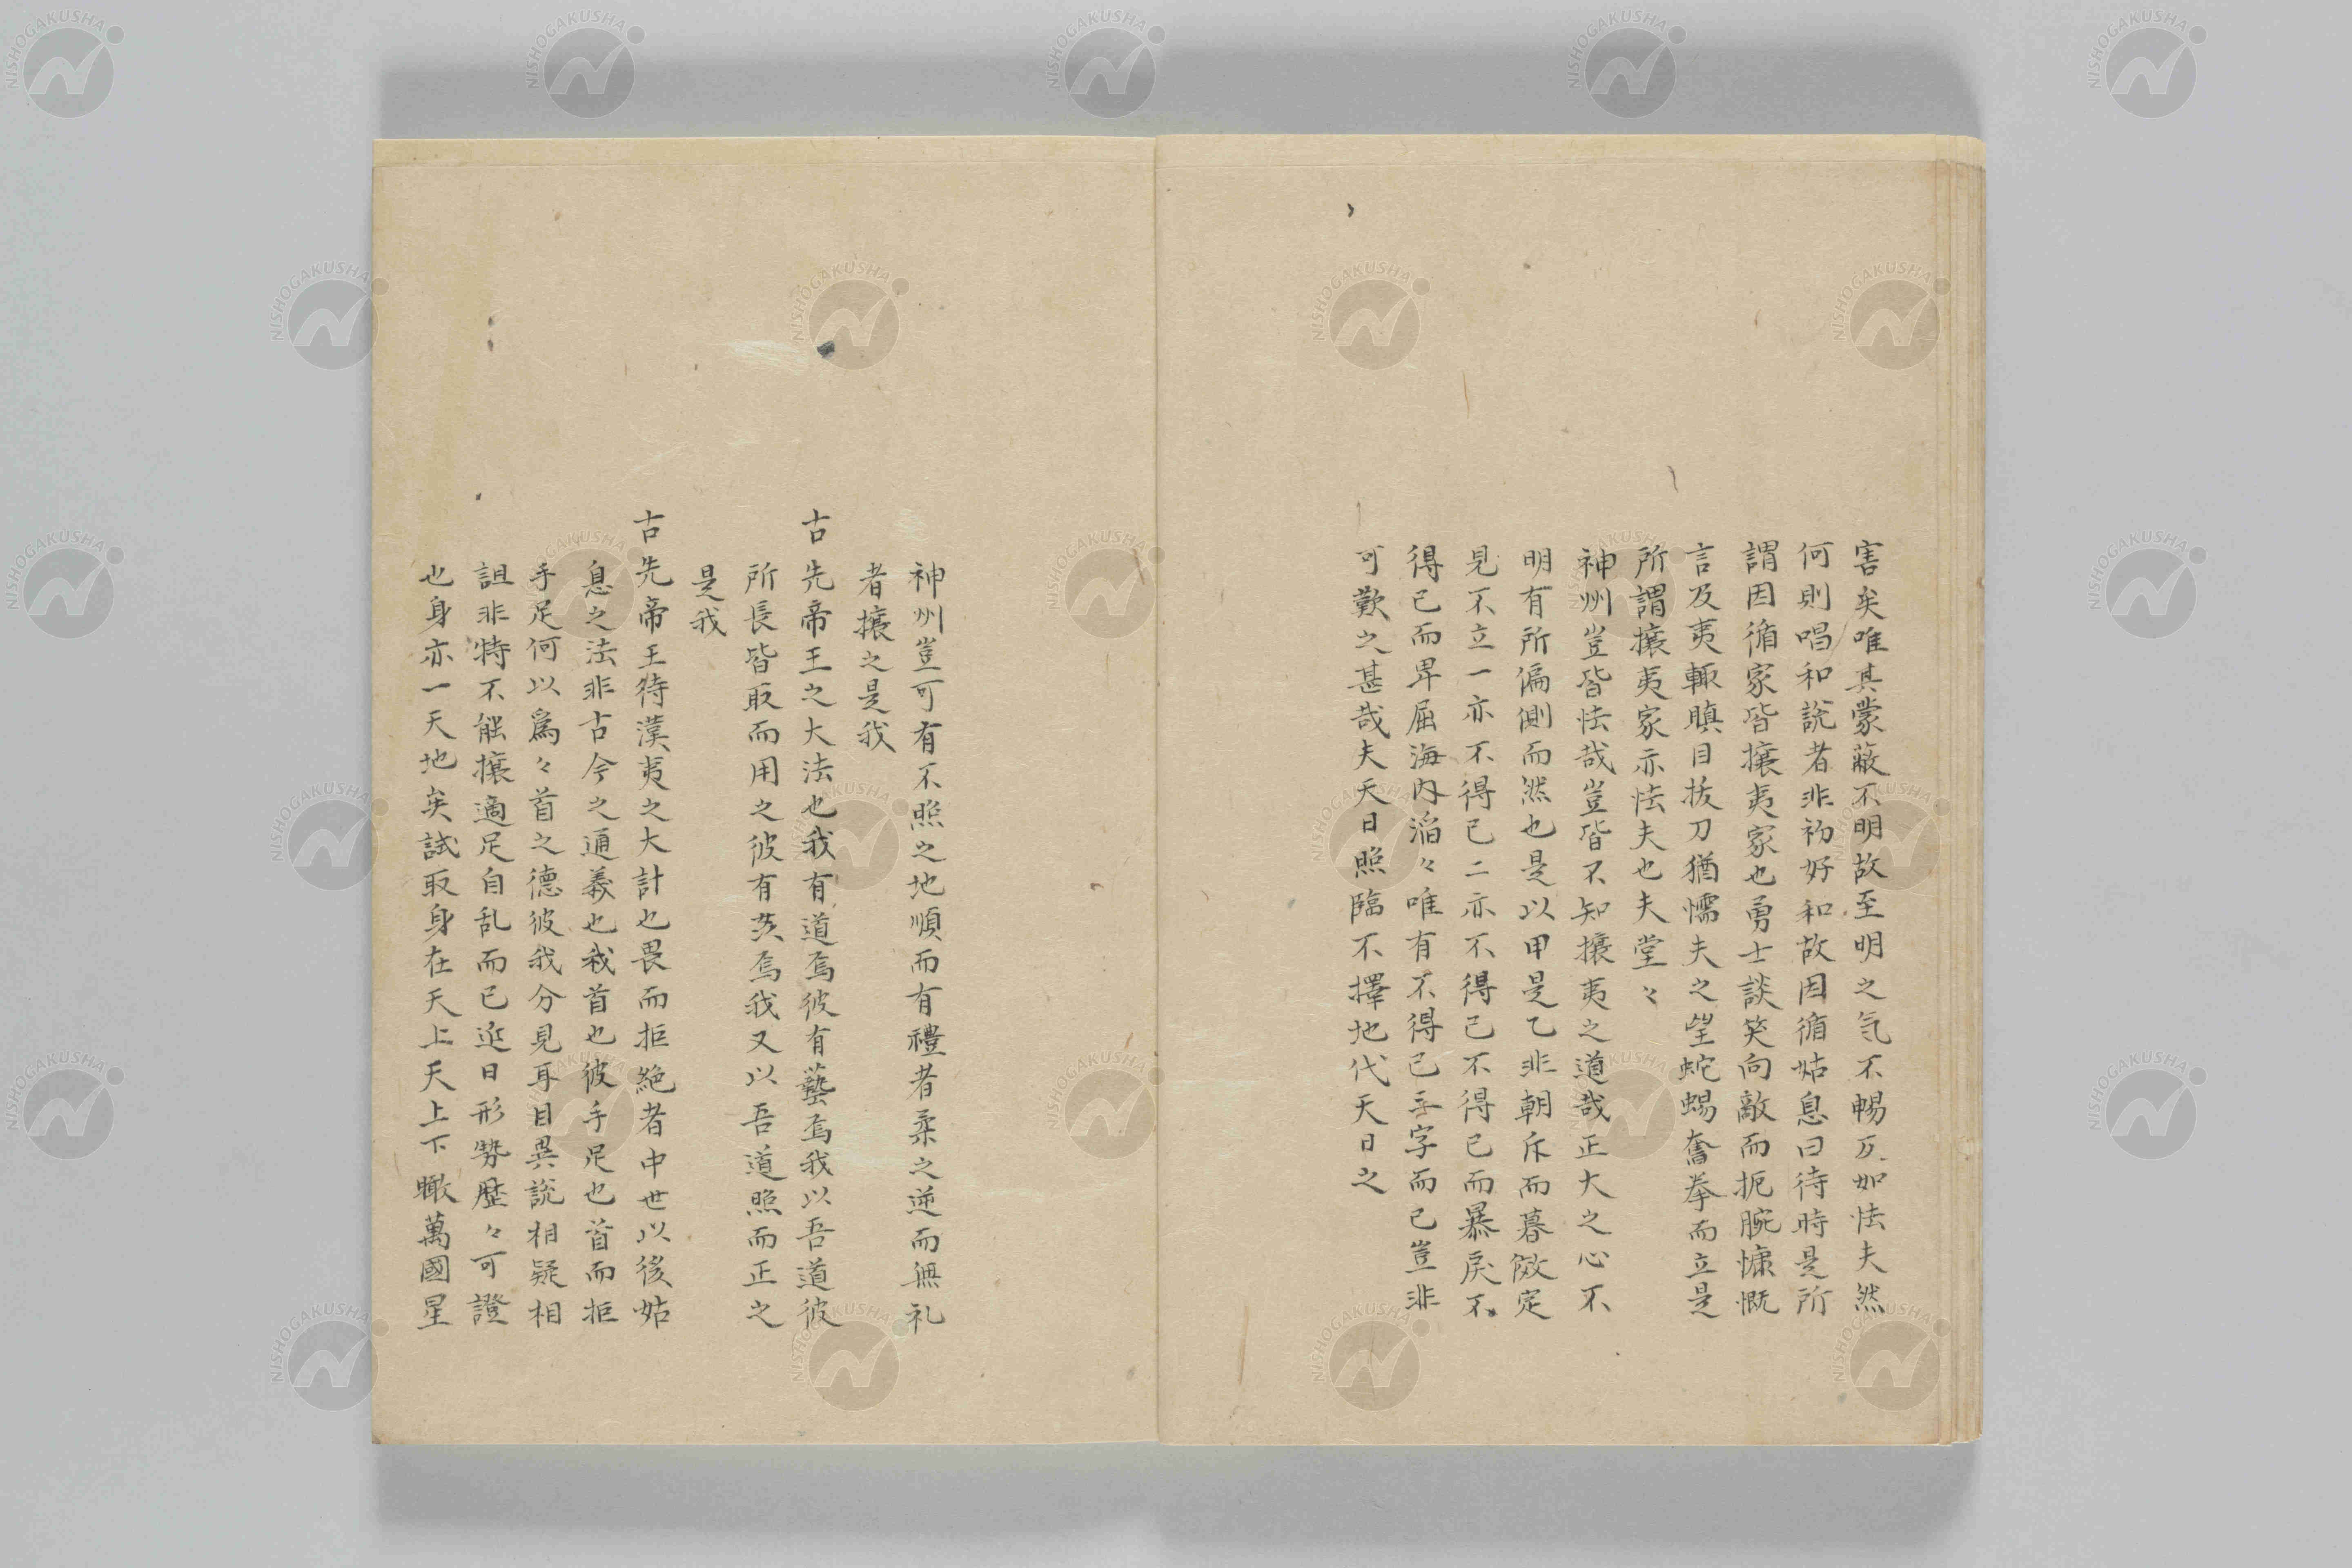 害矣唯其蒙蔽不明故至明之気不暢万如怯夫然
何則唱和説者非初好和故因循姑息曰待時是所
謂因循家皆攘夷家也勇士談笑向敵而扼腕慷慨
言及夷輙瞋目抜刀猶懦夫之望蛇蜴奮拳而立是
所謂攘夷家亦怯夫也夫堂々
神州豈皆怯哉豈皆不知攘夷之道哉正大之心不
明有所偏側而然也是以甲是乙非朝斥而暮倣定
見不立一亦不得已二亦不得已不得已而暴戻不
得已而卑屈海内滔々唯有不得已三字而已豈非
可歎之甚哉夫天日照臨不擇地代天日之
神州豈可有不照之地順而有禮者柔之逆而無礼
者攘之是我
古先帝王之大法也我有道焉彼有藝焉我以吾道彼
所長皆取而用之彼有災焉我又以吾道照而正之
是我
古先帝王待漢夷之大計也畏而拒絶者中世以後姑
息之法非古今之通義也我首也彼手足也首而拒
手足何以爲々首之德彼我分見耳目異説相疑相
詛非特不能攘適足自乱而已近日形勢歴々可證
也身亦一天地矣試取身在天上天上下瞰萬國星
NISHOGAKUSHA